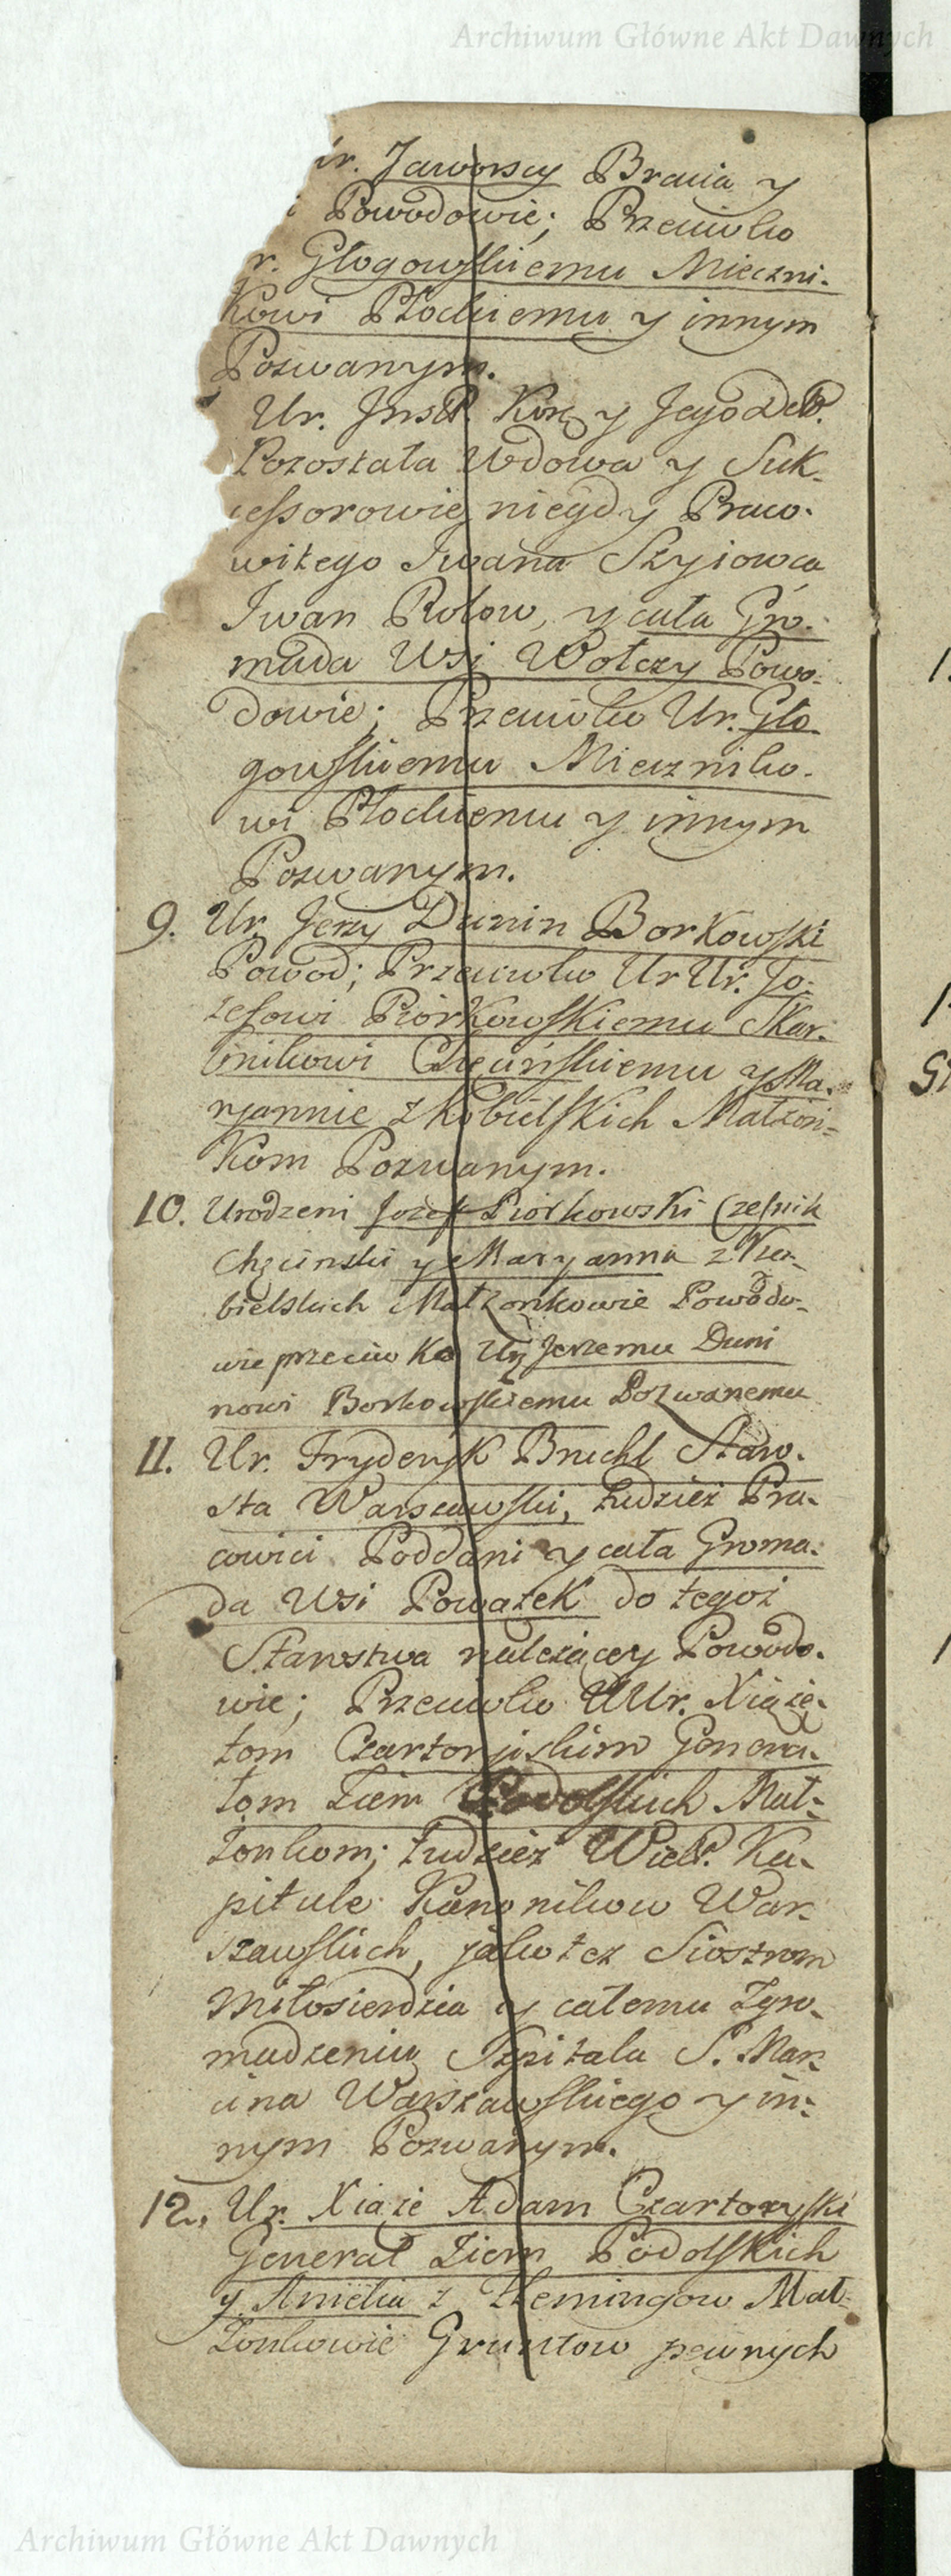 Archiwum Główne Akt Dawnych
Ur. Jaworscy Bracia y
i Powodowie; Przeciwko
r. Głogowskiemu Mieczni-
kowi Płockiemu y innym
Pozwanym.
Ur. Inst. Kor. y Jego Del.
Pozostała Wdowa y Suk-
cessorowie niegdy Praco-
witego Iwana Szyiowca
Iwan Rolow, y cała Gro-
mada Wsi Wołczy Powo-
dowie; Przeciwko Ur. Gło-
gowskiemu Mieczniko-
wi Płockiemu y innym
Pozwanym.
9. Ur. Jerzy Dunin Borkowski
Powod; Przeciwko Ur Ur. Jo-
zefowi Piorkowskiemu Skar-
bnikowi Chęcińskiemu y Ma-
ryannie z Kobielskich Małżon-
kom Pozwanym.
10. Urodzeni Jozef Piorkowski Czesnik
Chęcinski y Maryanna z Ko-
bielskich Małżonkowie Powodo-
wie przeciwko Ur Jerzemu Duni
nowi Borkowskiemu Pozwanemu
11. Ur. Fryderyk Bruchl Staro-
sta Warszawski, tudzież Pra-
cowici Poddani y cała Groma-
da Wsi Powązek do tegoż
Starostwa należącey Powodo-
wie; Przeciwko UUr. Xiążę-
tom Czartoryiskim Genera-
łom Ziem Podolskich Mał-
żonkom; tudzież Wiel. Ka-
pitule Kanonikow War-
szawskich, jako też Siostrom
Miłosierdzia y całemu Zgro-
madzeniu Szpitala S. Mar-
cina Warszawskiego y in-
nym Pozwanym.
12. Ur. Xiąże Adam Czartoryski
Generał Ziem Podolskich
y Amelia z Flemingow Mał-
żonkowie Gruntow pewnych
Archiwum Główne Akt Dawnych